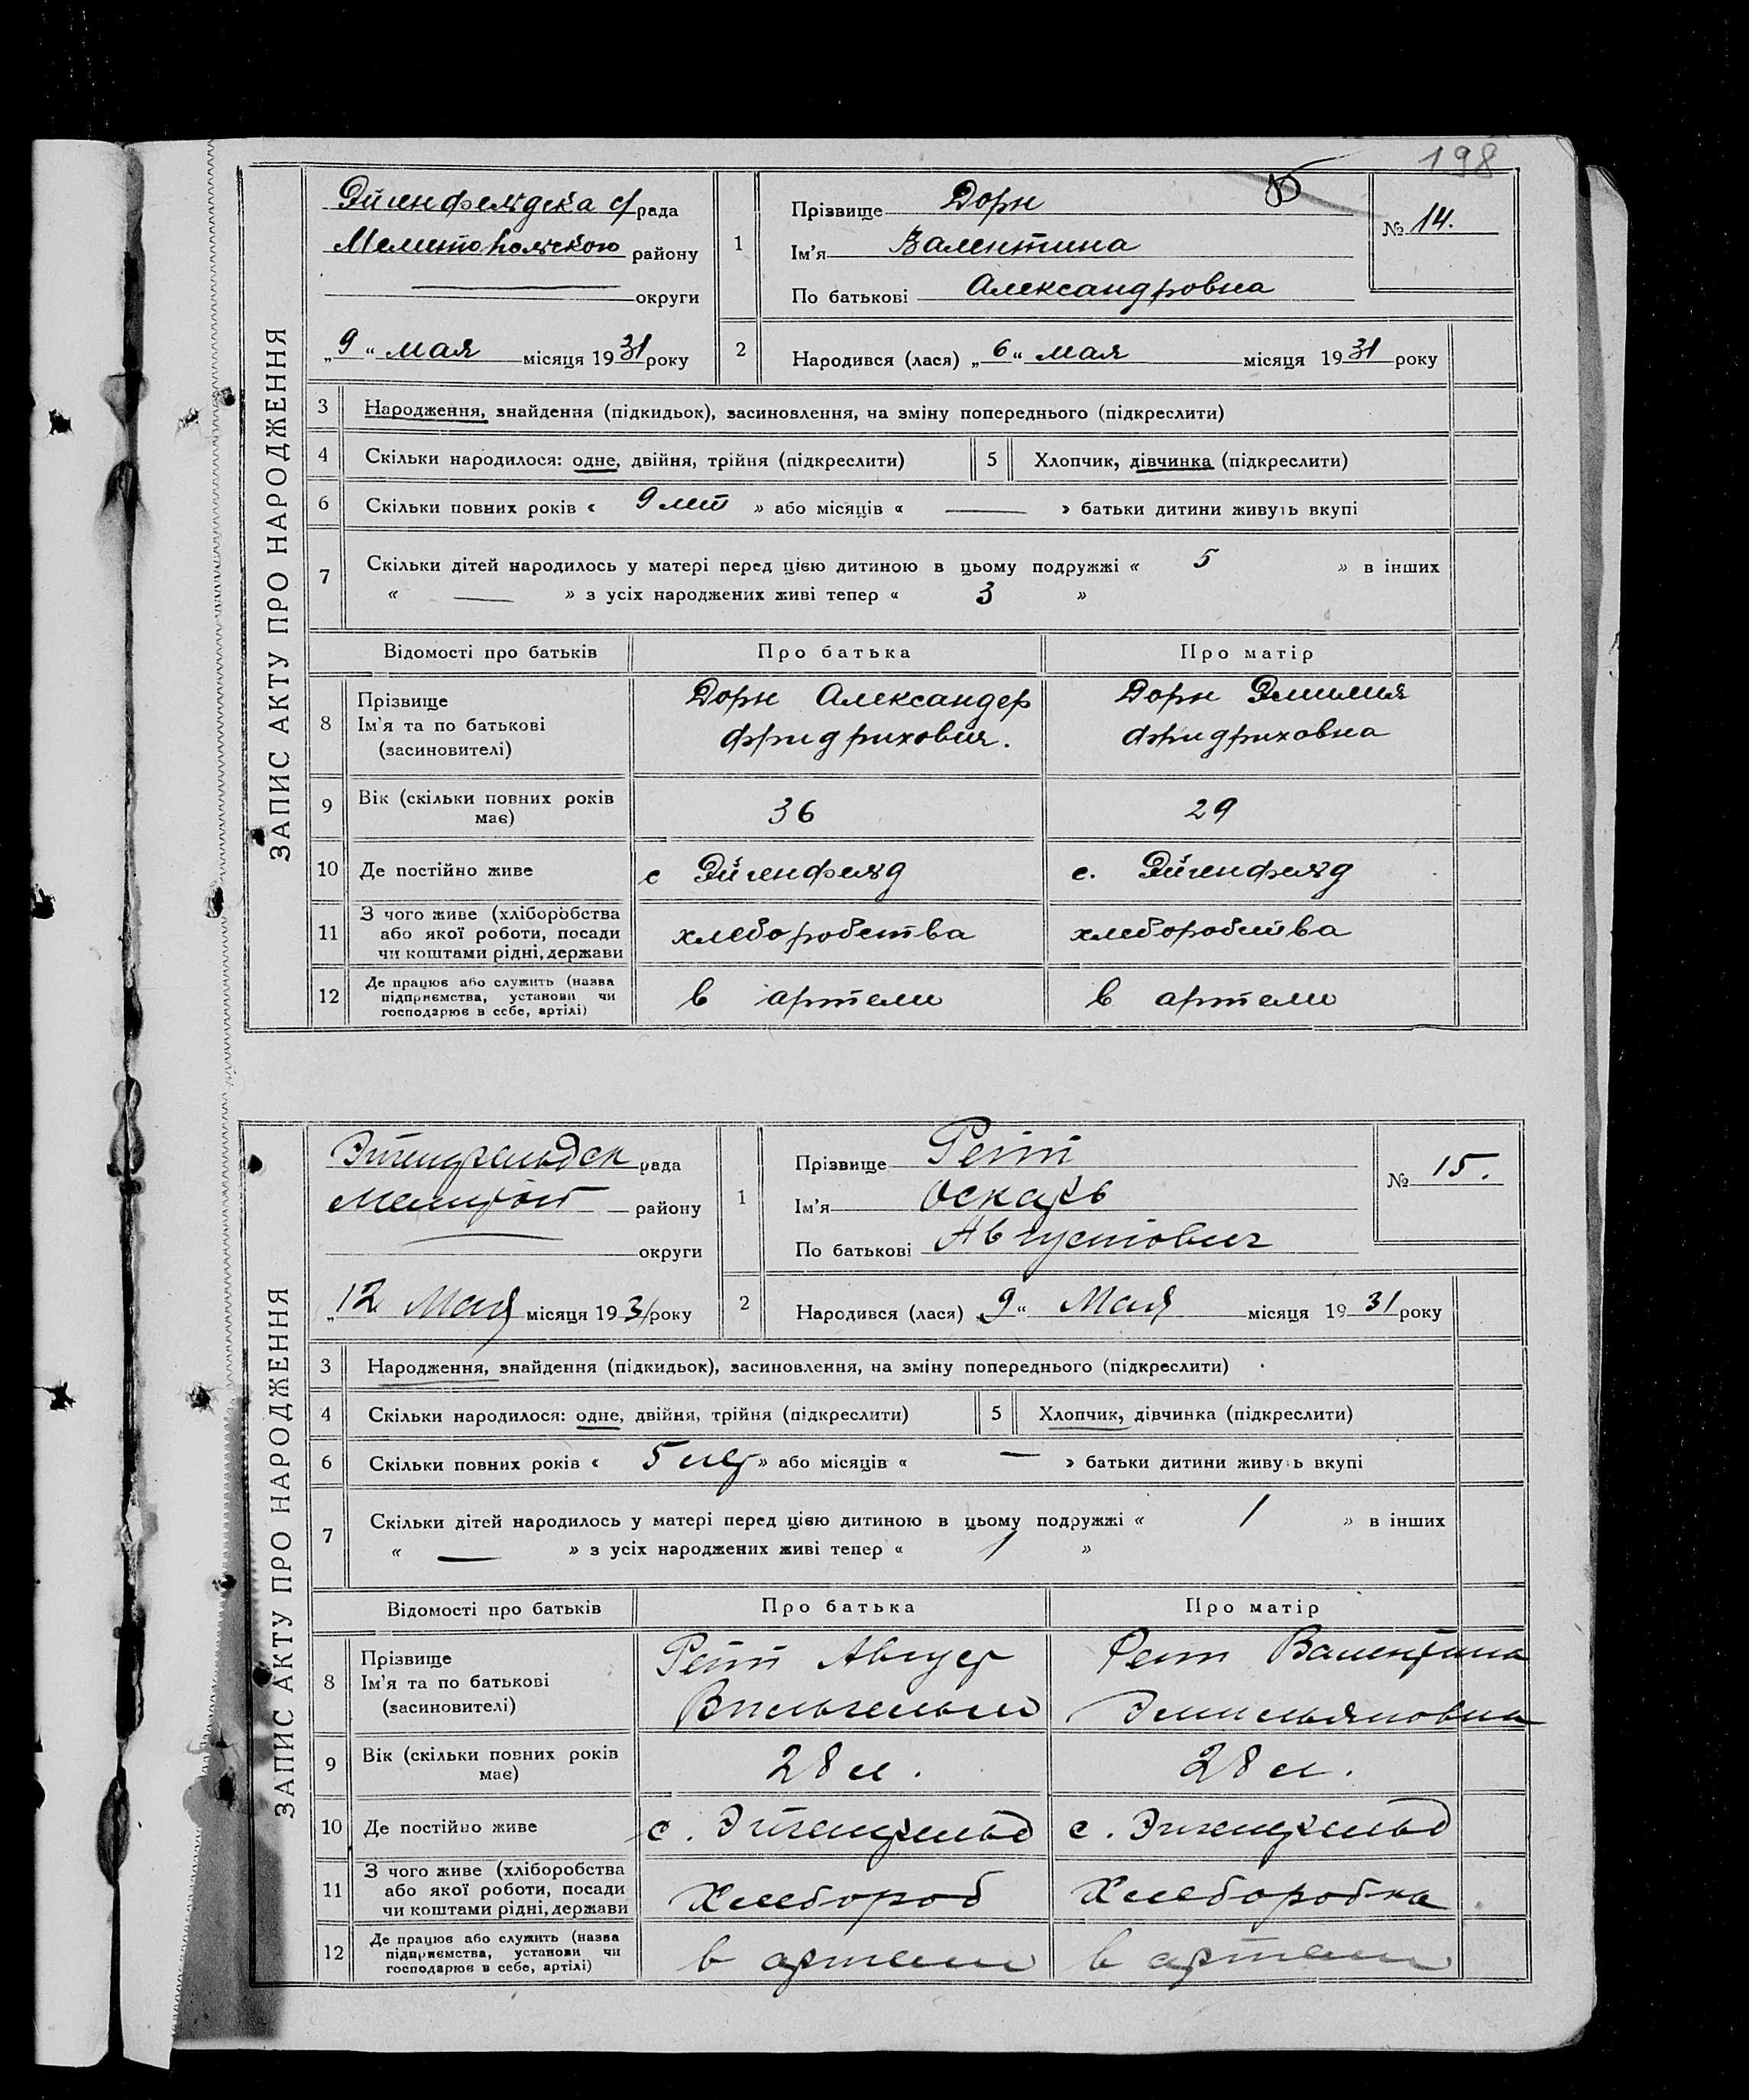 198
ЗАПИС АКТУ ПРО НАРОДЖЕННЯ
Эйгенфельдска с/рада
Мелитопольского району
округи
„9“ мая місяця 1931 року
1
Прізвище Дорн
Ім'я Валентина
По батькові Александровна
№ 14.
2
Народився (лася) „6“ мая місяця 1931 року
3 Народження, знайдення (підкидьок), засиновлення, на зміну попереднього (підкреслити)
4 Скільки народилося: одне, двійня, трійня (підкреслити)
5 Хлопчик, дівчинка (підкреслити)
6 Скільки повних років « 9 лет » або місяців « — » батьки дитини живуть вкупі
7 Скільки дітей народилось у матері перед цією дитиною в цьому подружжі « 5 » в інших
« — » з усіх народжених живі тепер « 3 »
Відомості про батьків Про батька Про матір
8 Прізвище
Ім'я та по батькові
(засиновителі)
Дорн Александер
Фридрихович.
Дорн Эмилия
Фридриховна
9 Вік (скільки повних років
має)
36
29
10 Де постійно живе
с Эйгенфельд
с. Эйгенфельд
11 З чого живе (хліборобства
або якої роботи, посади
чи коштами рідні, держави
хлеборобства
хлеборобства
12 Де працює або служить (назва
підприємства, установи чи
господарює в себе, артілі)
в артели
в артели
ЗАПИС АКТУ ПРО НАРОДЖЕННЯ
Эйгенфельдск рада
Мелитоп району
округи
„12 Мая місяця 1931 року
1
Прізвище Рейт
Ім'я Оскарь
По батькові Августович
№ 15.
2
Народився (лася) „9“ Мая місяця 1931 року
3 Народження, знайдення (підкидьок), засиновлення, на зміну попереднього (підкреслити)
4 Скільки народилося: одне, двійня, трійня (підкреслити)
5 Хлопчик, дівчинка (підкреслити)
6 Скільки повних років « 5 лет » або місяців « — » батьки дитини живуть вкупі
7 Скільки дітей народилось у матері перед цією дитиною в цьому подружжі « 1 » в інших
« — » з усіх народжених живі тепер « 1 »
Відомості про батьків Про батька Про матір
8 Прізвище
Ім'я та по батькові
(засиновителі)
Рейт Август
Вильгельм
Рейт Валентина
Эмильяновна
9 Вік (скільки повних років
має)
28 л.
28 л.
10 Де постійно живе
с. Эйгенфельд
с. Эйгенфельд
11 З чого живе (хліборобства
або якої роботи, посади
чи коштами рідні, держави
Хлебороб
Хлеборобка
12 Де працює або служить (назва
підприємства, установи чи
господарює в себе, артілі)
в артели
в артели